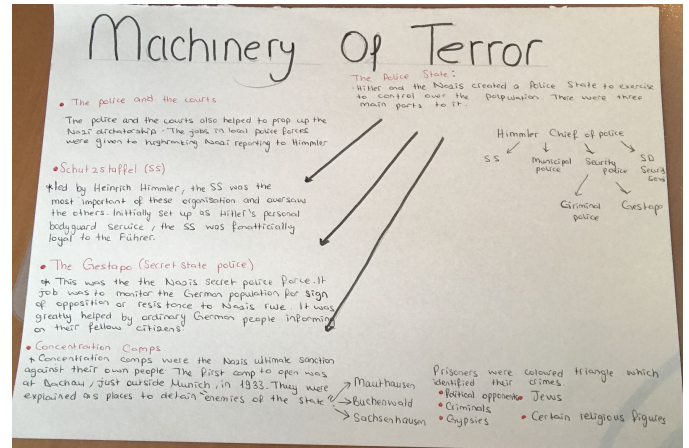 Machinery Of Terror
The Police State:
- Hitler and the Nazis created a Police State to exercise
to control over the polpulation. There were three
main parts to it.
• The police and the courts
The police and the courts also helped to prop up the
Nazi dictatorship - The jobs in local police forces
were given to highranking Nazai reporting to Himmler
Himmler Chief of police
SS
Municipal
police
Security
police
SD
Criminal
police
Gestapo
• Schutzstaffel (SS)
*led by Heinrich Himmler, the SS was the
most important of these organisation and oversaw
the others. Initially set up as Hitler's personal
bodyguard service, the SS was
loyal to the Führer.
• The Gestapo (Secret State police)
* This was the the Nazis secret police force. It
job was to monitor the German population for sign
of opposition or resistance to Nazis rule. It was
greatly helped by ordinary German people informing
on their fellow citizens.
• Concentration Camps
* Concentration camps were the Nazis ultimate sanction
against their own people. The first camp to open was
at Dachau, just outside Munich, in 1933. They were
explained as places to detain "enemies of the state"
Mauthausen
Buchenwald
Sachsenhausen
Prisoners were coloured triangle which
identified their crimes.
• Political opponents • Jews
• Criminals
• Gypsies • Certain religious figures